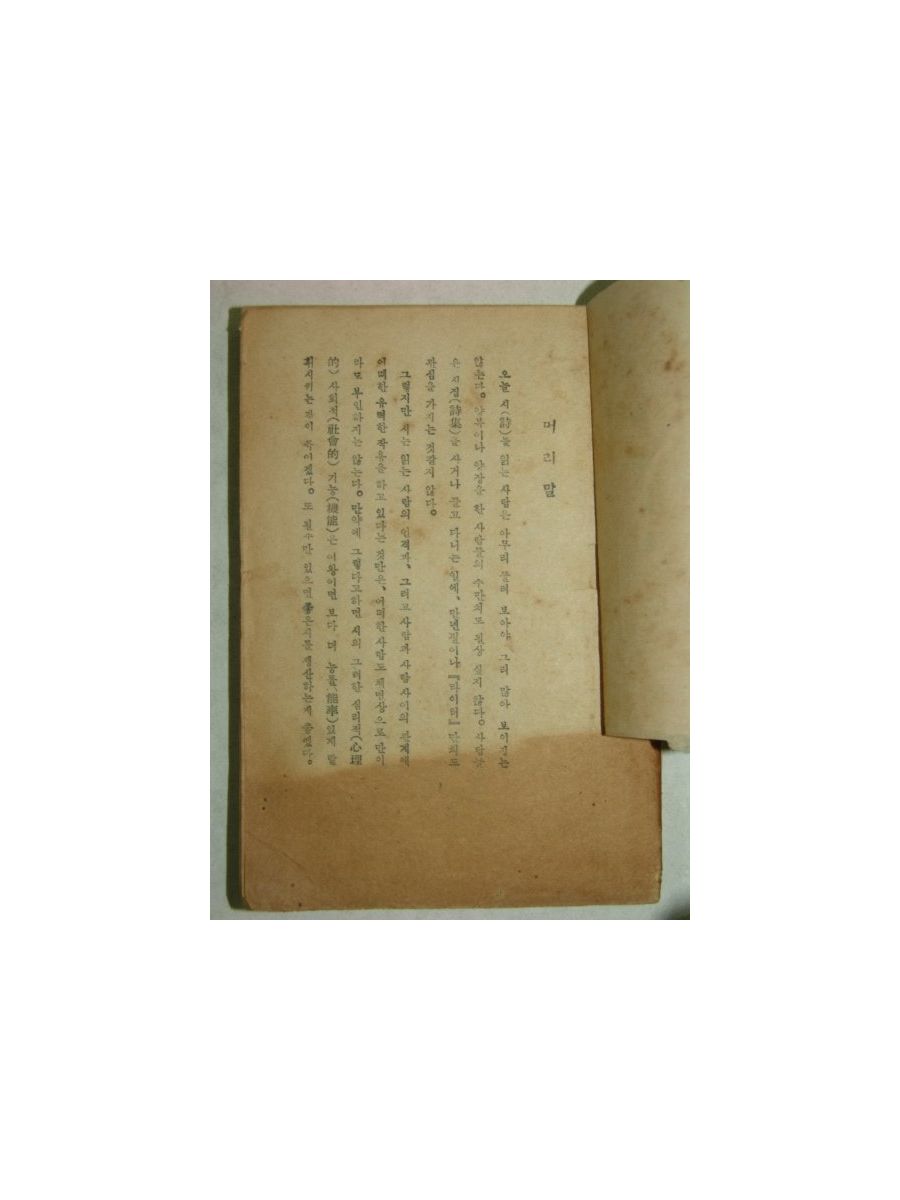 머리말
오늘 시(詩)를 읽는 사람은 아무리 둘러 보아야 그리 많아 보이지는
않는다。양복이나 핫장을 한 사람들의 수만치도 필상 싶지 않다。사람들
은 시집(詩集)을 사거나 들고 다니는 일에、만년필이나 『라이터』만치도
관심을 가지는 것같지 않다。
그렇지만 시는 읽는 사람의 인격과、그리고 사람과 사람 사이의 관계에
어떠한 유력한 작용을 하고 있다는 것만은、어떠한 사람도 체면상으로만이
라도 부인하지는 않는다。만약에 그렇다고하면 시의 그러한 심리적(心理
的) 사회적(社會的) 기능(機能)은 이왕이면 보다 더 능률(能率)있게 발
휘시키는 것이 좋아겠다。또 될수만 있으면 좋은시를 생산하는게 좋겠다。